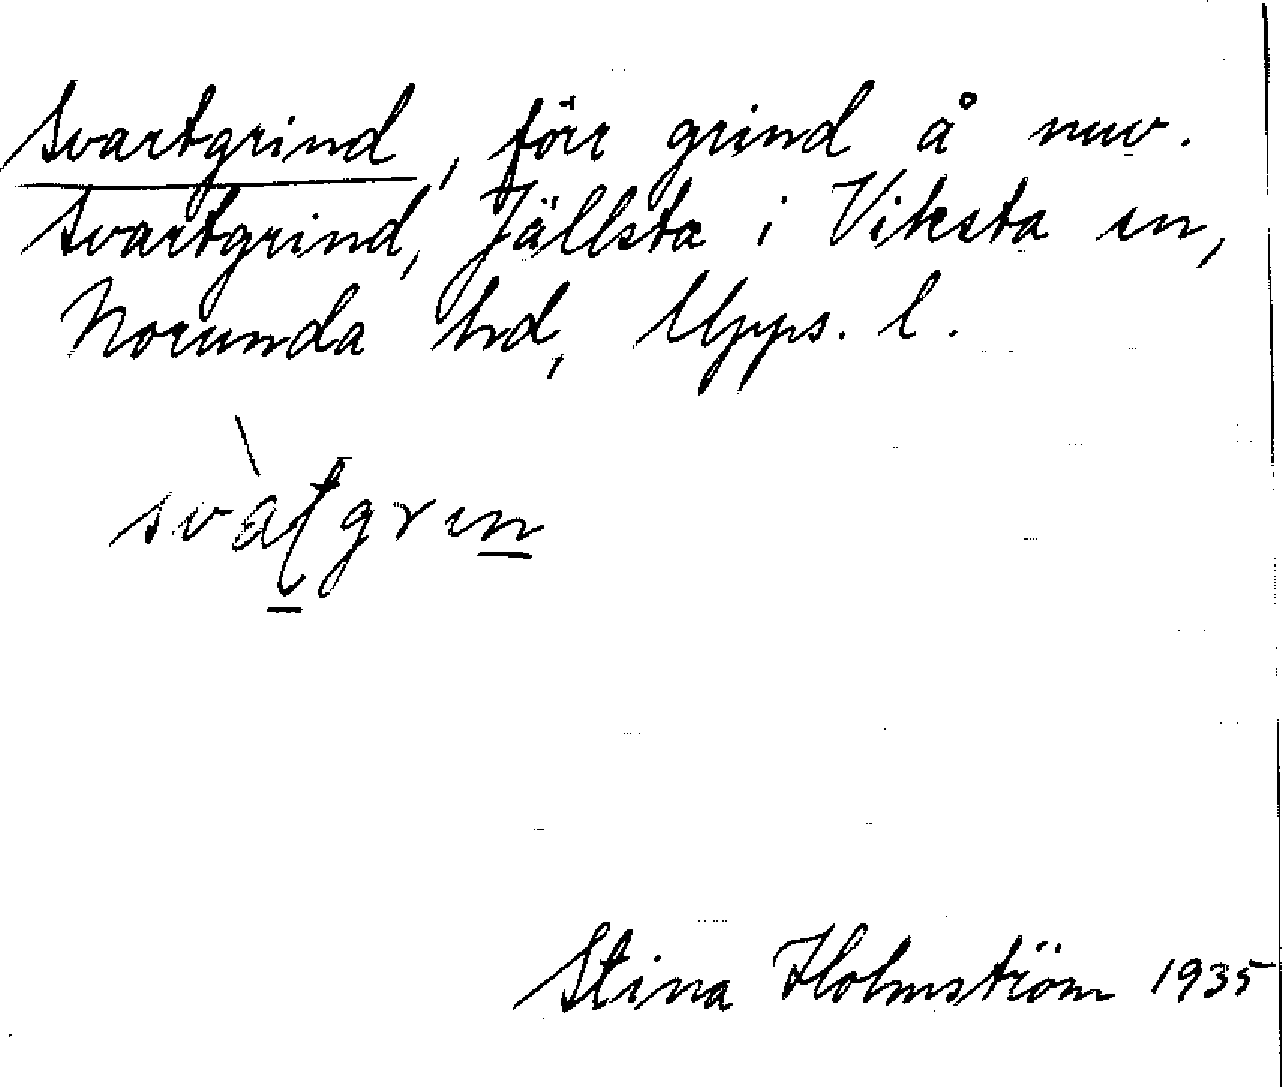 Svartgrind, förr grind å nuv.
Svartgrind, Jällsta i Viksta sn,
Norunda hd, Upps. l.
svàtgrın
Stina Holmström 1935